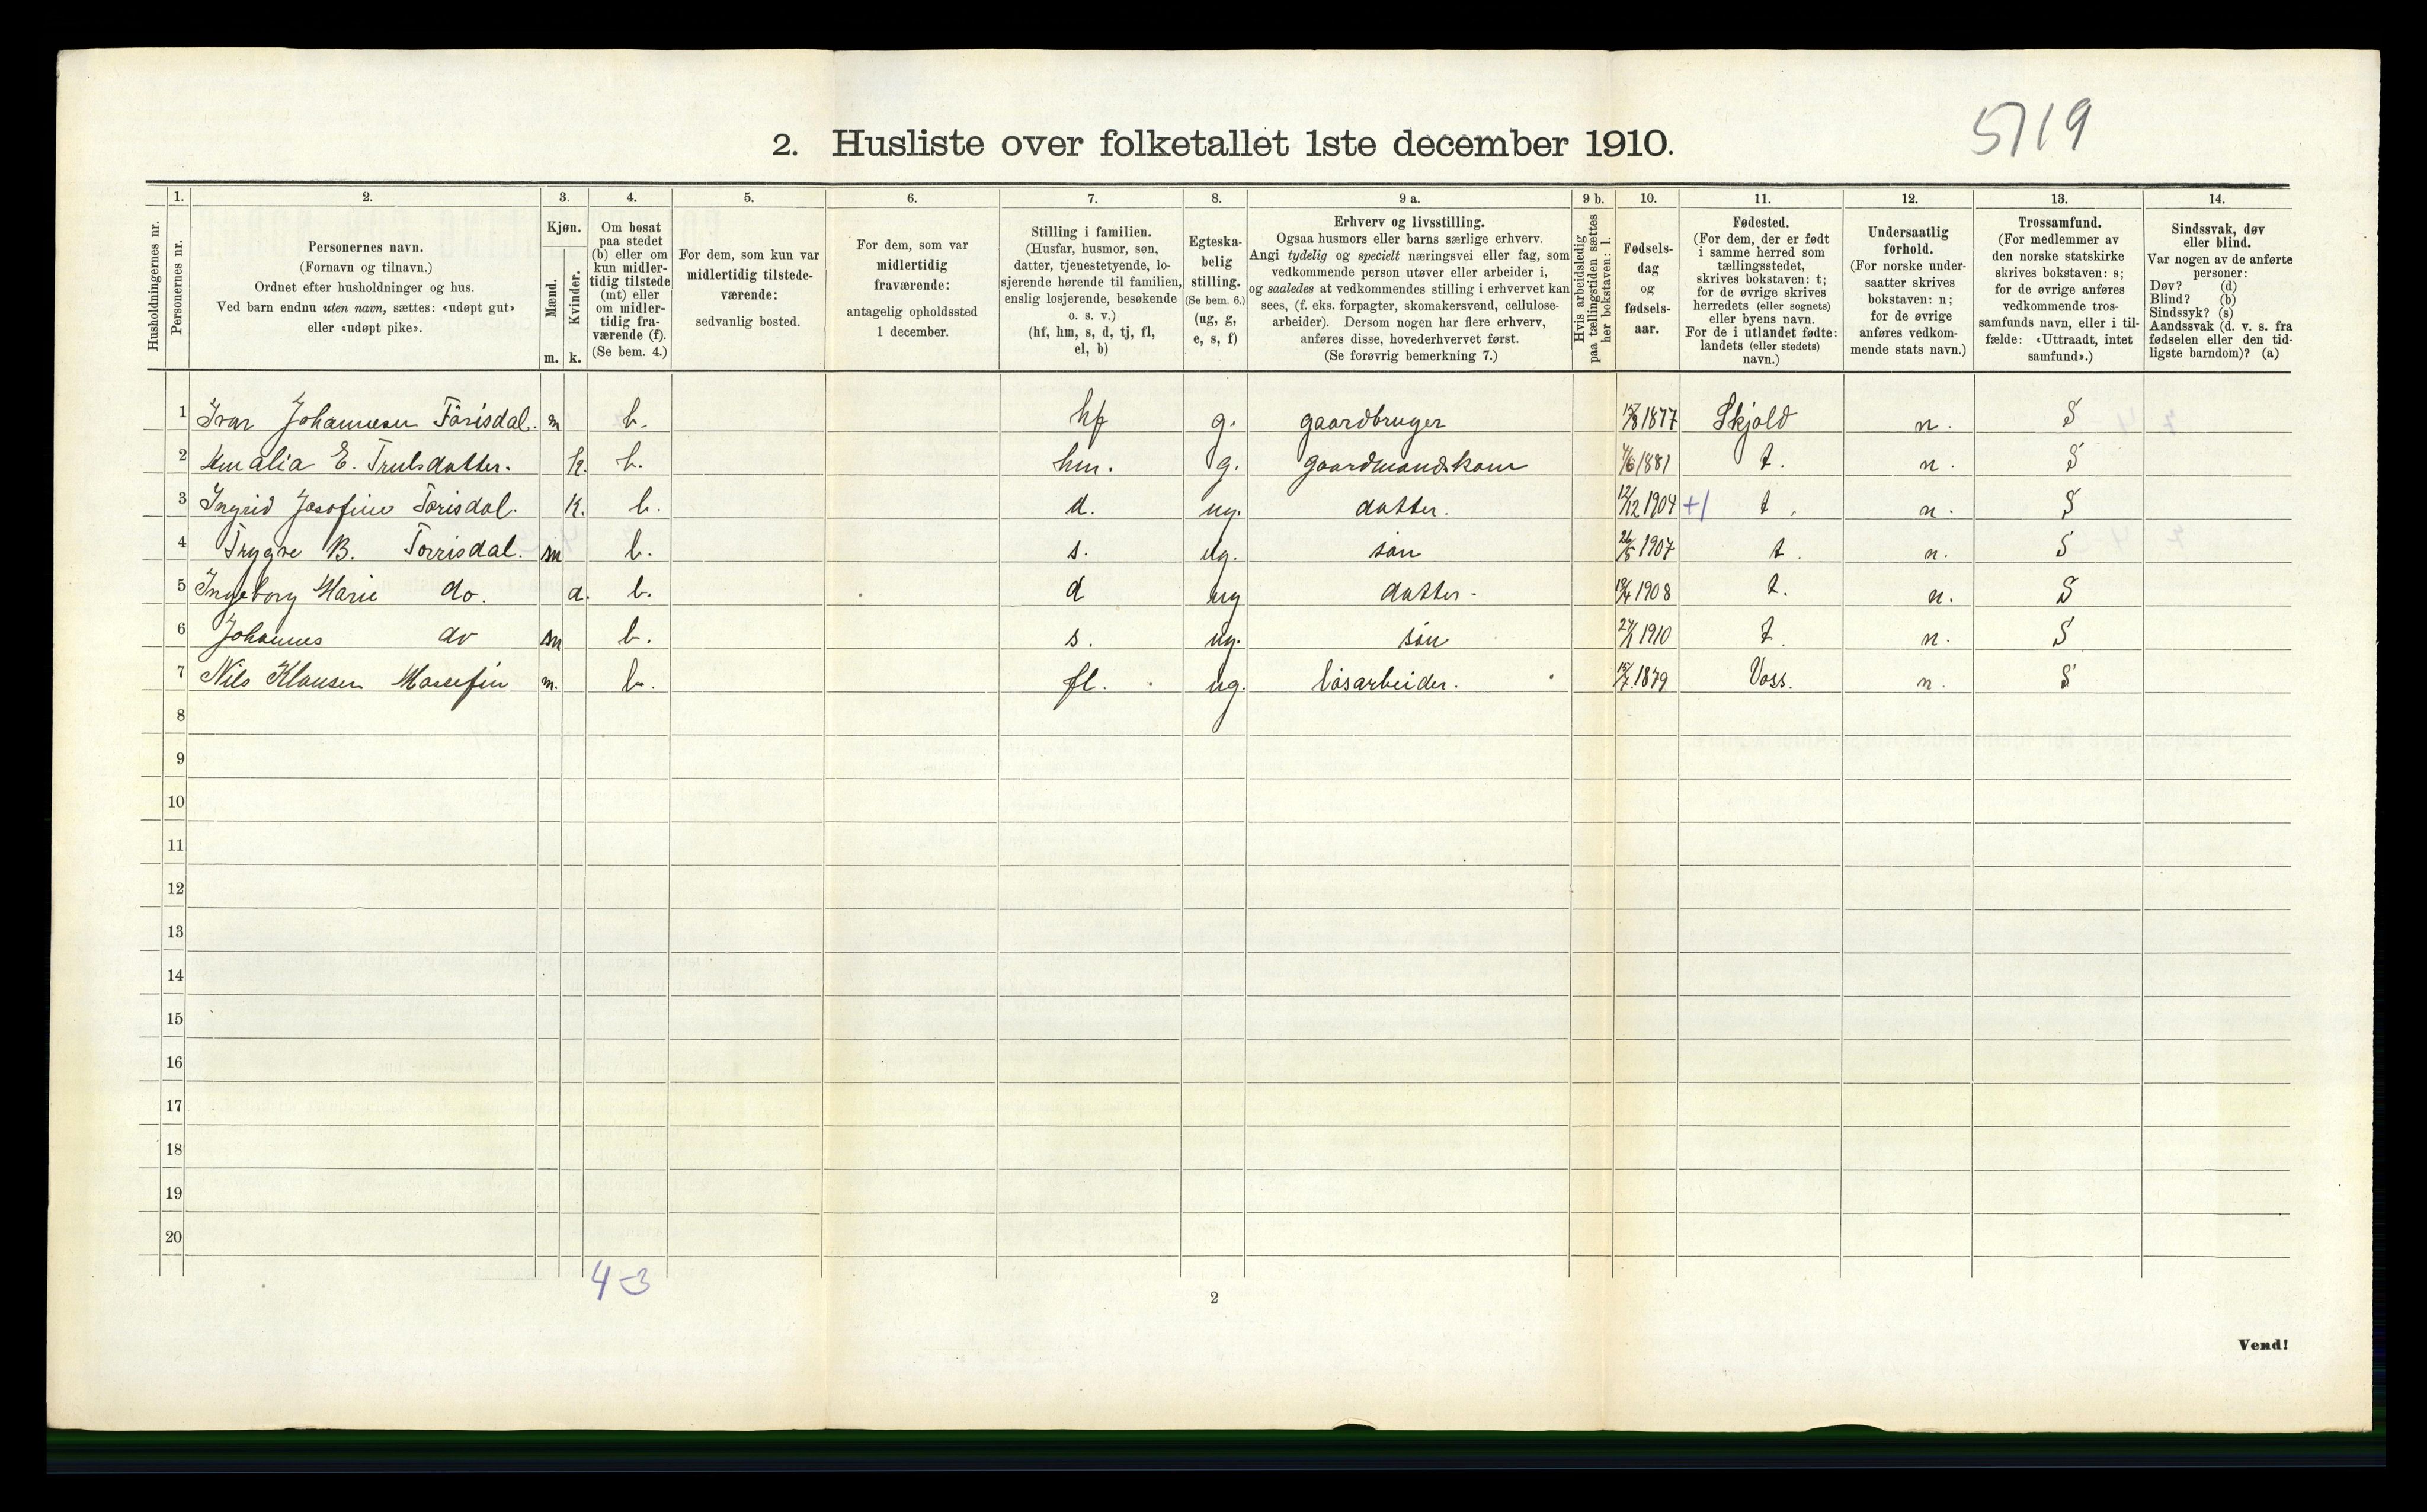 5719
2. Husliste over folketallet 1ste december 1910.
Husholdningernes nr.
1. Personernes nr.
2. Personernes navn.
(Fornavn og tilnavn.)
Ordnet efter husholdninger og hus.
Ved barn endnu uten navn, sættes: «udøpt gut»
eller «udøpt pike».
3. Kjøn.
Mænd. m.
Kvinder. k.
4. Om bosat
paa stedet
(b) eller om
kun midler-
tidig tilstede
(mt) eller
om midler-
tidig fra-
værende (f).
(Se bem. 4.)
5. For dem, som kun var
midlertidig tilstede-
værende:
sedvanlig bosted.
6. For dem, som var
midlertidig
fraværende:
antagelig opholdssted
1 december.
7. Stilling i familien.
(Husfar, husmor, søn,
datter, tjenestetyende, lo-
sjerende hørende til familien,
enslig losjerende, besøkende
o. s. v.)
(hf, hm, s, d, tj, fl,
el, b)
8. Egteska-
belig
stilling.
(Se bem. 6.)
(ug, g,
e, s, f)
9 a. Erhverv og livsstilling.
Ogsaa husmors eller barns særlige erhverv.
Angi tydelig og specielt næringsvei eller fag, som
vedkommende person utøver eller arbeider i,
og saaledes at vedkommendes stilling i erhvervet kan
sees, (f. eks. forpagter, skomakersvend, cellulose-
arbeider). Dersom nogen har flere erhverv,
anføres disse, hovederhvervet først.
(Se forøvrig bemerkning 7.)
9 b. Hvis arbeidsledig
paa tællingstiden sættes
her bokstaven: l.
10. Fødsels-
dag
og
fødsels-
aar.
11. Fødested.
(For dem, der er født
i samme herred som
tællingsstedet,
skrives bokstaven: t;
for de øvrige skrives
herredets (eller sognets)
eller byens navn.
For de i utlandet fødte:
landets (eller stedets)
navn.)
12. Undersaatlig
forhold.
(For norske under-
saatter skrives
bokstaven: n;
for de øvrige
anføres vedkom-
mende stats navn.)
13. Trossamfund.
(For medlemmer av
den norske statskirke
skrives bokstaven: s;
for de øvrige anføres
vedkommende tros-
samfunds navn, eller i til-
fælde: «Uttraadt, intet
samfund».)
14. Sindssvak, døv
eller blind.
Var nogen av de anførte
personer:
Døv? (d)
Blind? (b)
Sindssyk? (s)
Aandssvak (d. v. s. fra
fødselen eller den tid-
ligste barndom)? (a)
1 Ivar Johannesen Törisdal. m b. hf g. gaardbruger 1877 Skjold n. S
2 Amalia E. Trulsdatter. k. b. hm. g. gaardmandskone 1881 t. n. S
3 Ingrid Josofine Torisdal. k. b. d. ug. datter. 12/12 1904 +1 t. n. S
4 Trygve B. Torrisdal. m b. s. ug. sön 26/5 1907 t. n. S
5 Ingeborg Marie do. d. b. d ug datter - 1908 t. n. S
6 Johannes do m b. s. ug. sön 1910 t. n. S
7 Nils Klausen m. b. fl. ug. lösarbeider. 1879 Voss. n. S
8
9
10
11
12
13
14
15
16
17
18
19
20
4-3
2
Vend!